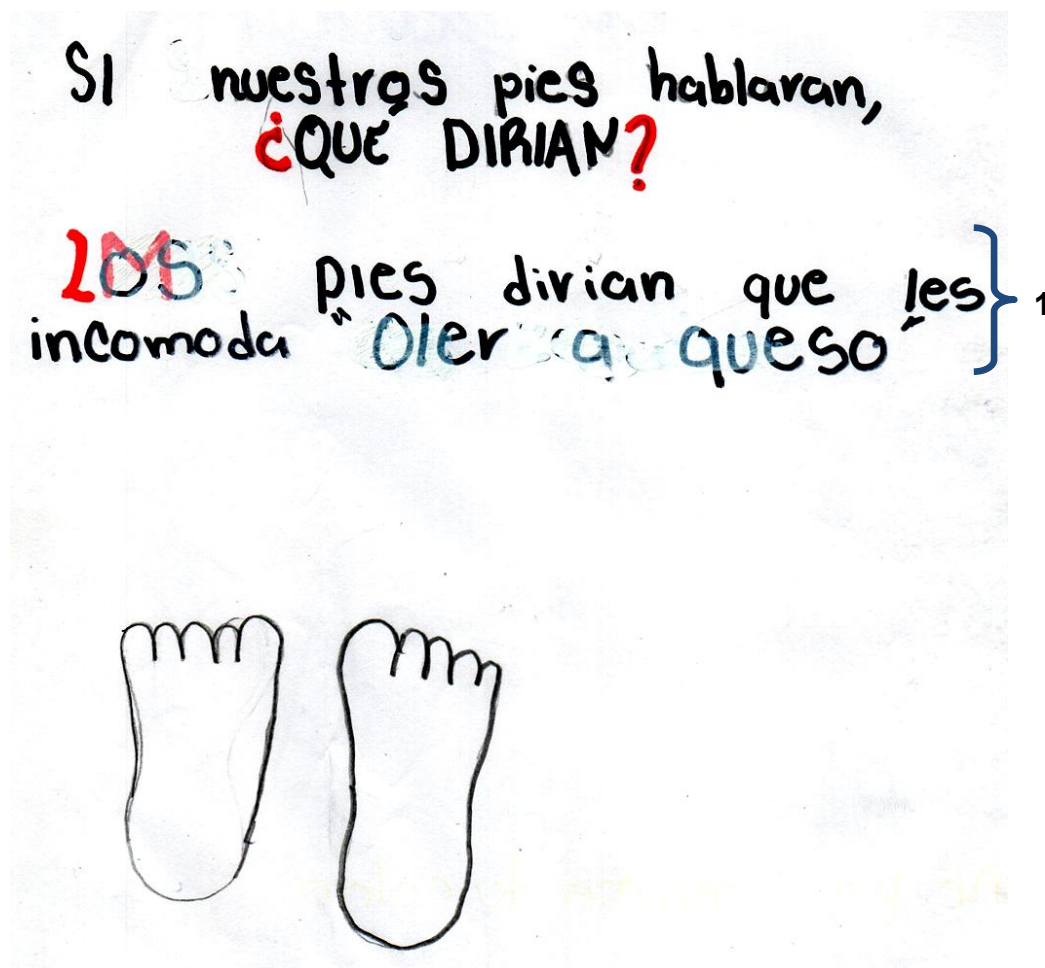 SI nuestros pies hablaran,
¿QUÉ DIRIAN?
LOS pies dirian que les
incomoda "Oler a queso"
1